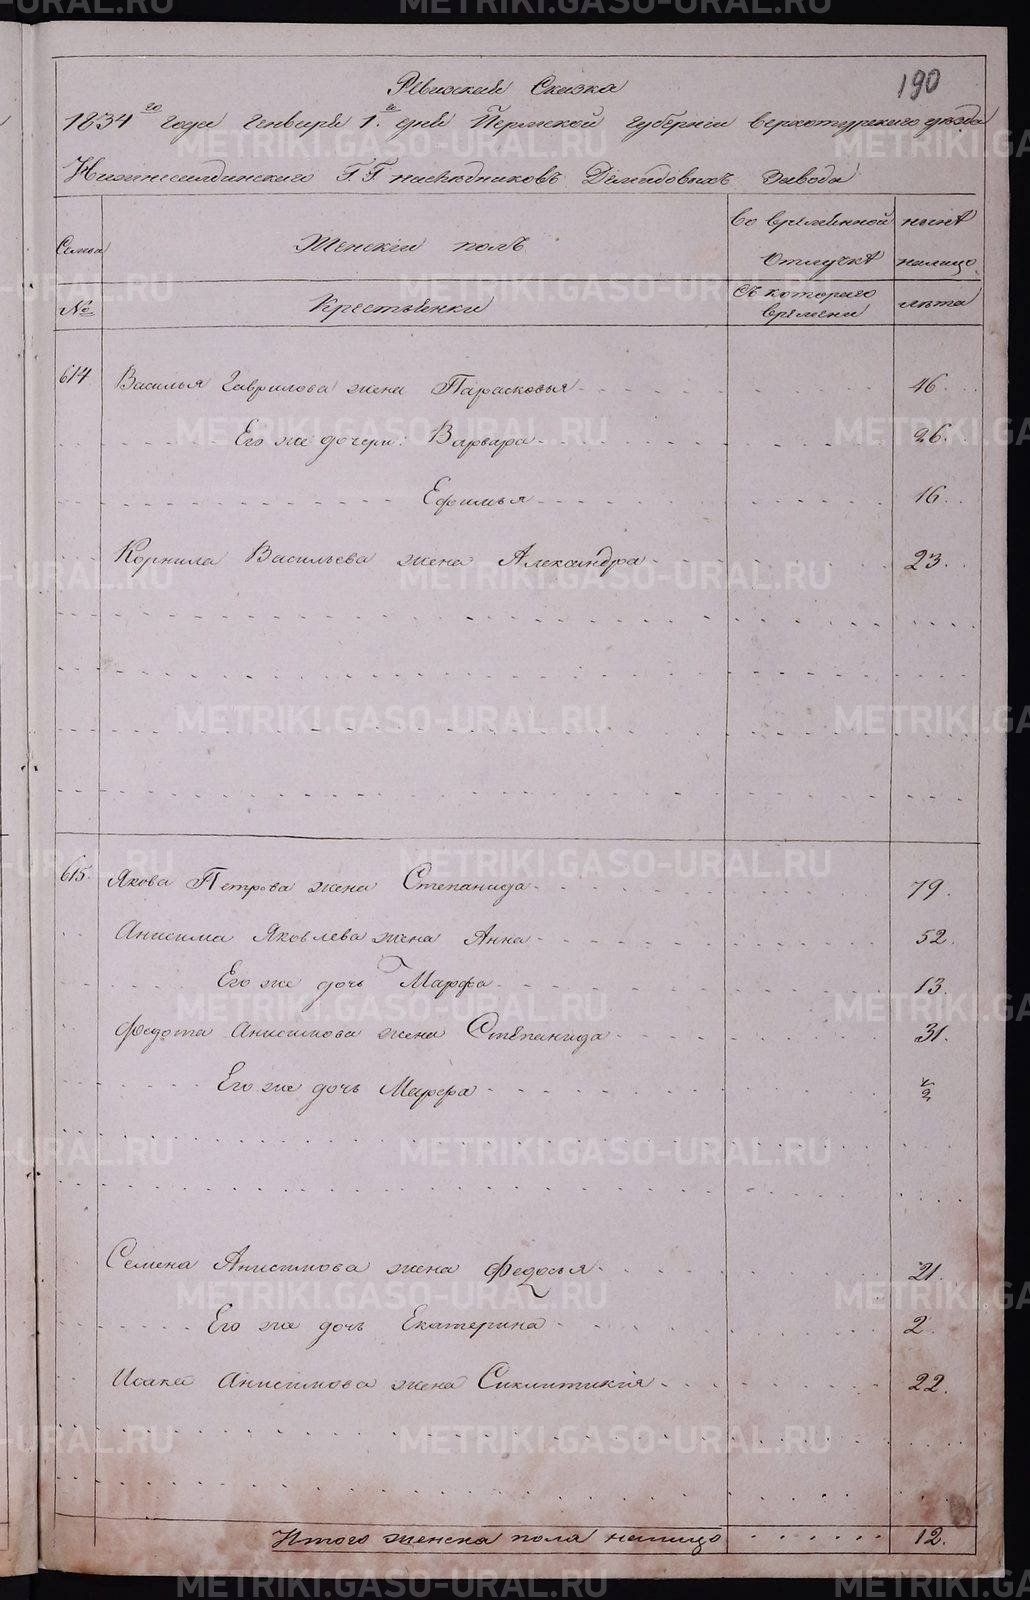 190
Ревизская Сказка
1834го года Генваря 1.го дня Пермской Губернии Верхотурского уезда
Нижнесалдинского Г.Г. наследниковъ Демидовыхъ Завода
Семьи
Женский полъ
Во временной
отлучкѣ
нынѣ
налицо
№
Крестьянки
Съ которого
времени
лѣта
614 Василья Гаврилова жена Парасковья 46.
Его же дочери: Варвара 26.
Ефимья 16.
Корнила Васильева жена Александра 23.
615. Якова Петрова жена Степанида 79.
Анисима Яковлева жена Анна 52.
Его же дочь Марфа 13.
Федота Анисимова жена Степанида 31.
Его же дочь Марфа
Семена Анисимова жена Федосья 21.
Его же дочь Екатерина 2.
Исака Анисимова жена Сиклитикия 22.
Итого женска пола налицо 12.
METRIKI.GASO-URAL.RU